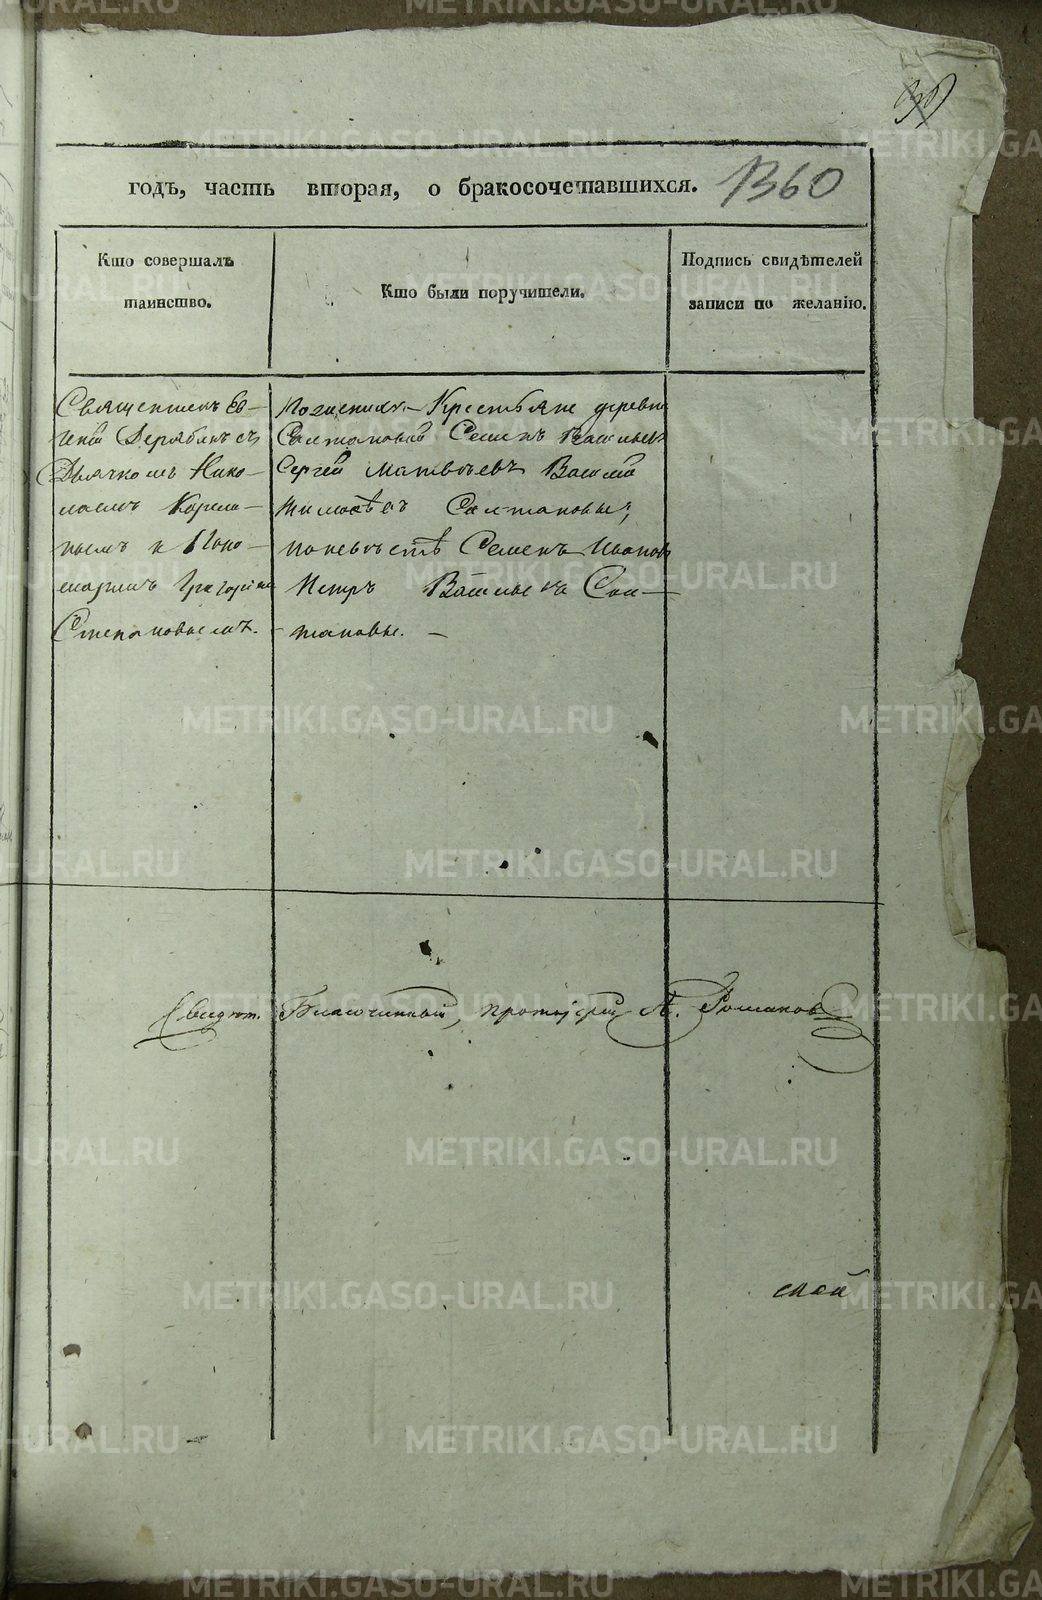 годъ, часть вторая, о бракосочетавшихся. 1360
Кто совершалъ
таинство.
Кто были поручители.
Подпись свидѣтелей
записи по желанію.
Священникъ Ев-
геній Дерябинъ съ
Дьячкомъ Нико-
лаемъ
нымъ и Поно-
маремъ Григоріем
Степановымъ.
По женихѣ - Крестьяне деревни
Салтановой Семенъ Васильевъ
Сергей Матвѣевъ Василій
Тимофѣевъ Салтановые;
по невѣстѣ Семенъ Ивановъ
Петръ Васильевъ Сал-
тановые. -
Свидѣт. Благочинный, протоіерей А. Романовъ
ской
METRIKI.GASO-URAL.RU